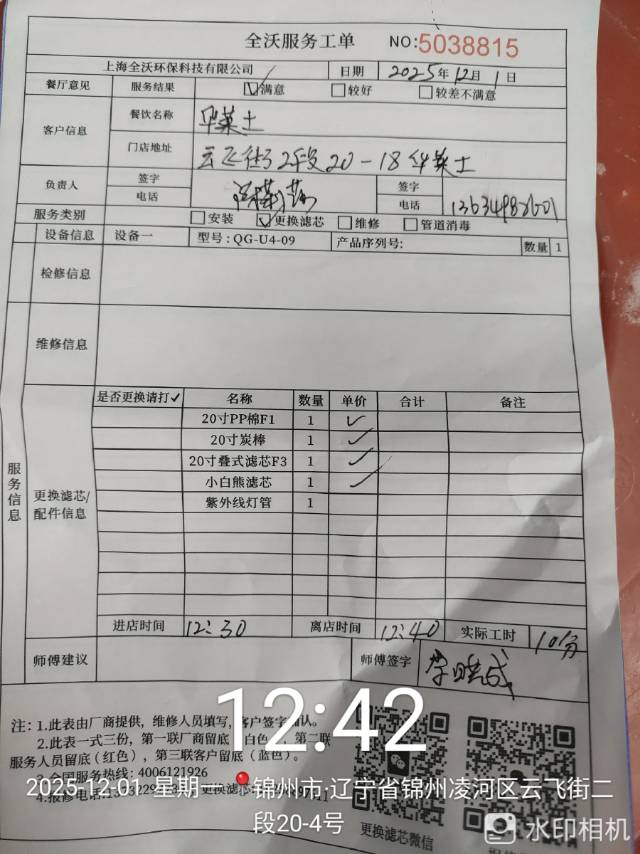 全沃服务工单 NO:5038815
上海全沃环保科技有限公司 日期 2025年12月1日
餐厅意见 服务结果 ☑满意 □较好 □较差不满意
客户信息 餐饮名称 华莱士
门店地址 云飞街2段20-18华莱士
负责人 签字 签字
电话 电话
服务类别 □安装 ☑更换滤芯 □维修 □管道消毒
设备信息 设备一 型号:QG-U4-09 产品序列号: 数量 1
检修信息
维修信息
服务信息
更换滤芯/配件信息
是否更换请打✓ 名称 数量 单价 合计 备注
20寸PP棉F1 1 ✓
20寸炭棒 1 ✓
20寸叠式滤芯F3 1 ✓
小白熊滤芯 1 ✓
紫外线灯管 1
进店时间 12:30 离店时间 12:40 实际工时 10分
师傅建议 师傅签字
注:1.此表由厂商提供,维修人员填写,客户签字确认。
2.此表一式三份,第一联厂商留底 白色 ,第二联
服务人员留底(红色),第三联客户留底(蓝色)。
3.全国服务热线:4006121926
4.报修电话:
更换滤芯微信
12:42
2025-12-01 星期一 锦州市·辽宁省锦州凌河区云飞街二
段20-4号
水印相机